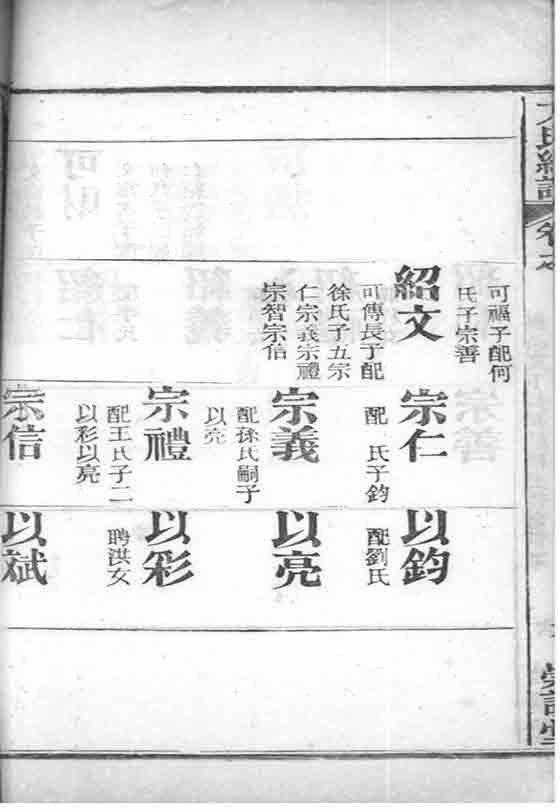 可福子配何
氏子宗善
紹文
可傳長子配
徐氏子五宗
仁宗義宗禮
宗智宗信
宗善
宗仁
配　氏子鈞
宗義
配孫氏嗣子
以亮
宗禮
配王氏子二
以彩以亮
宗信
以鈞
配劉氏
以亮
以彩
聘洪女
以斌